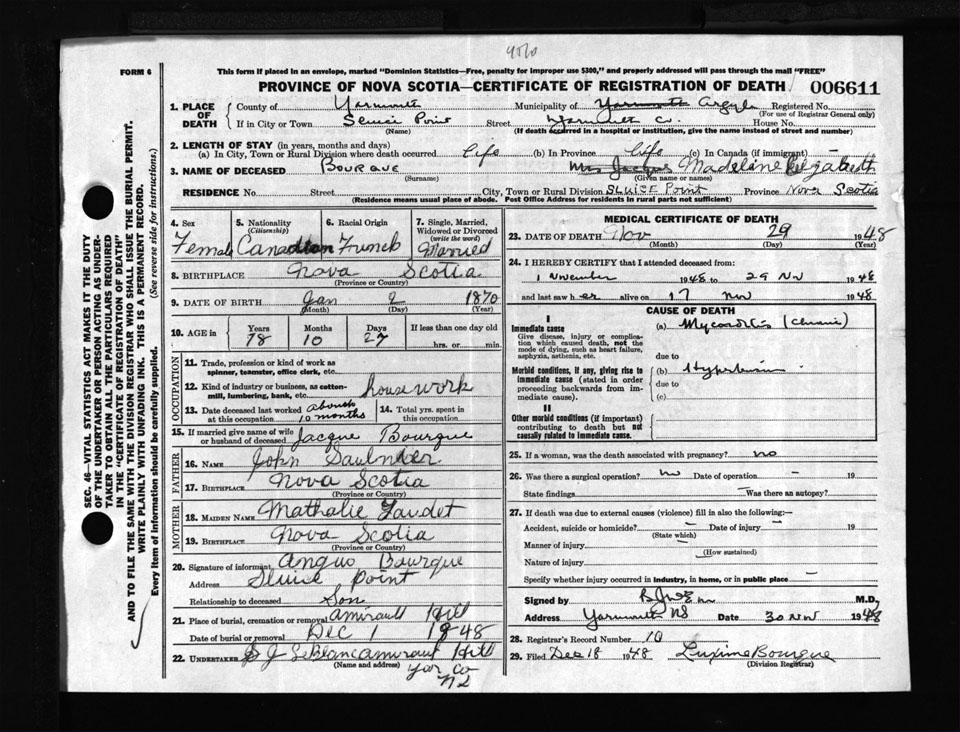 4010
FORM 6
This form if placed in an envelope, marked "Dominion Statistics—Free, penalty for improper use $300," and properly addressed will pass through the mail "FREE"
PROVINCE OF NOVA SCOTIA—CERTIFICATE OF REGISTRATION OF DEATH 006611
1. PLACE OF DEATH
County of Yarmouth Municipality of Yarmouth Argyle Registered No.
(For use of Registrar General only)
If in City or Town Sluice Point Street Yarmouth Co. House No.
(Name) (If death occurred in a hospital or institution, give the name instead of street and number)
2. LENGTH OF STAY (in years, months and days)
(a) In City, Town or Rural Division where death occurred life (b) In Province life (c) In Canada (if immigrant) —
3. NAME OF DECEASED Bourque Mrs Jacque Madeline Elizabeth
(Surname) (Given name or names)
RESIDENCE No. Street City, Town or Rural Division Sluice Point Province Nova Scotia
(Residence means usual place of abode. Post Office Address for residents in rural parts not sufficient)
4. Sex Female
5. Nationality (Citizenship) Canadian
6. Racial Origin French
7. Single, Married, Widowed or Divorced (write the word) Married
8. BIRTHPLACE Nova Scotia
(Province or Country)
9. DATE OF BIRTH Jan 2 1870
(Month) (Day) (Year)
10. AGE in Years Months Days If less than one day old
78 10 27 hrs. or min.
OCCUPATION
11. Trade, profession or kind of work as spinner, teamster, office clerk, etc.
12. Kind of industry or business, as cotton-mill, lumbering, bank, etc. house work
13. Date deceased last worked at this occupation about 10 months
14. Total yrs. spent in this occupation
15. If married give name of wife or husband of deceased Jacque Bourque
FATHER
16. NAME John Saulnier
17. BIRTHPLACE Nova Scotia
(Province or Country)
MOTHER
18. MAIDEN NAME Mathalie
19. BIRTHPLACE Nova Scotia
(Province or Country)
20. Signature of informant Angus Bourque
Address Sluice Point
Relationship to deceased Son
21. Place of burial, cremation or removal Amirault Hill
Date of burial or removal Dec 1 1948
22. UNDERTAKER S J LeBlanc Amirault Hill
(Name and address) Yar Co
NS
MEDICAL CERTIFICATE OF DEATH
23. DATE OF DEATH Nov 29 1948
(Month) (Day) (Year)
24. I HEREBY CERTIFY that I attended deceased from:
1 November 1948 to 29 Nov 1948
and last saw her alive on 17 Nov 1948
CAUSE OF DEATH
I
Immediate cause
Give disease, injury or complication which caused death, not the mode of dying, such as heart failure, asphyxia, asthenia, etc.
(a) Myocarditis (chronic)
due to
Morbid conditions, if any, giving rise to immediate cause (stated in order proceeding backwards from immediate cause).
(b) Hypertension
due to
(c)
II
Other morbid conditions (if important) contributing to death but not causally related to immediate cause.
25. If a woman, was the death associated with pregnancy? no
26. Was there a surgical operation? no Date of operation — 19
State findings —Was there an autopsy?
27. If death was due to external causes (violence) fill in also the following:—
Accident, suicide or homicide? — Date of injury — 19
(State which)
Manner of injury —
(How sustained)
Nature of injury
Specify whether injury occurred in industry, in home, or in public place —
Signed by M.D.
Address Yarmouth NS Date 30 Nov 1948
28. Registrar's Record Number 10
29. Filed Dec 18 1948 Luxime Bourque
(Division Registrar)
SEC. 46—VITAL STATISTICS ACT MAKES IT THE DUTY
OF THE UNDERTAKER OR PERSON ACTING AS UNDER-
TAKER TO OBTAIN ALL THE PARTICULARS REQUIRED
IN THE "CERTIFICATE OF REGISTRATION OF DEATH"
AND TO FILE THE SAME WITH THE DIVISION REGISTRAR WHO SHALL ISSUE THE BURIAL PERMIT.
WRITE PLAINLY WITH UNFADING INK. THIS IS A PERMANENT RECORD.
Every item of information should be carefully supplied. (See reverse side for instructions.)